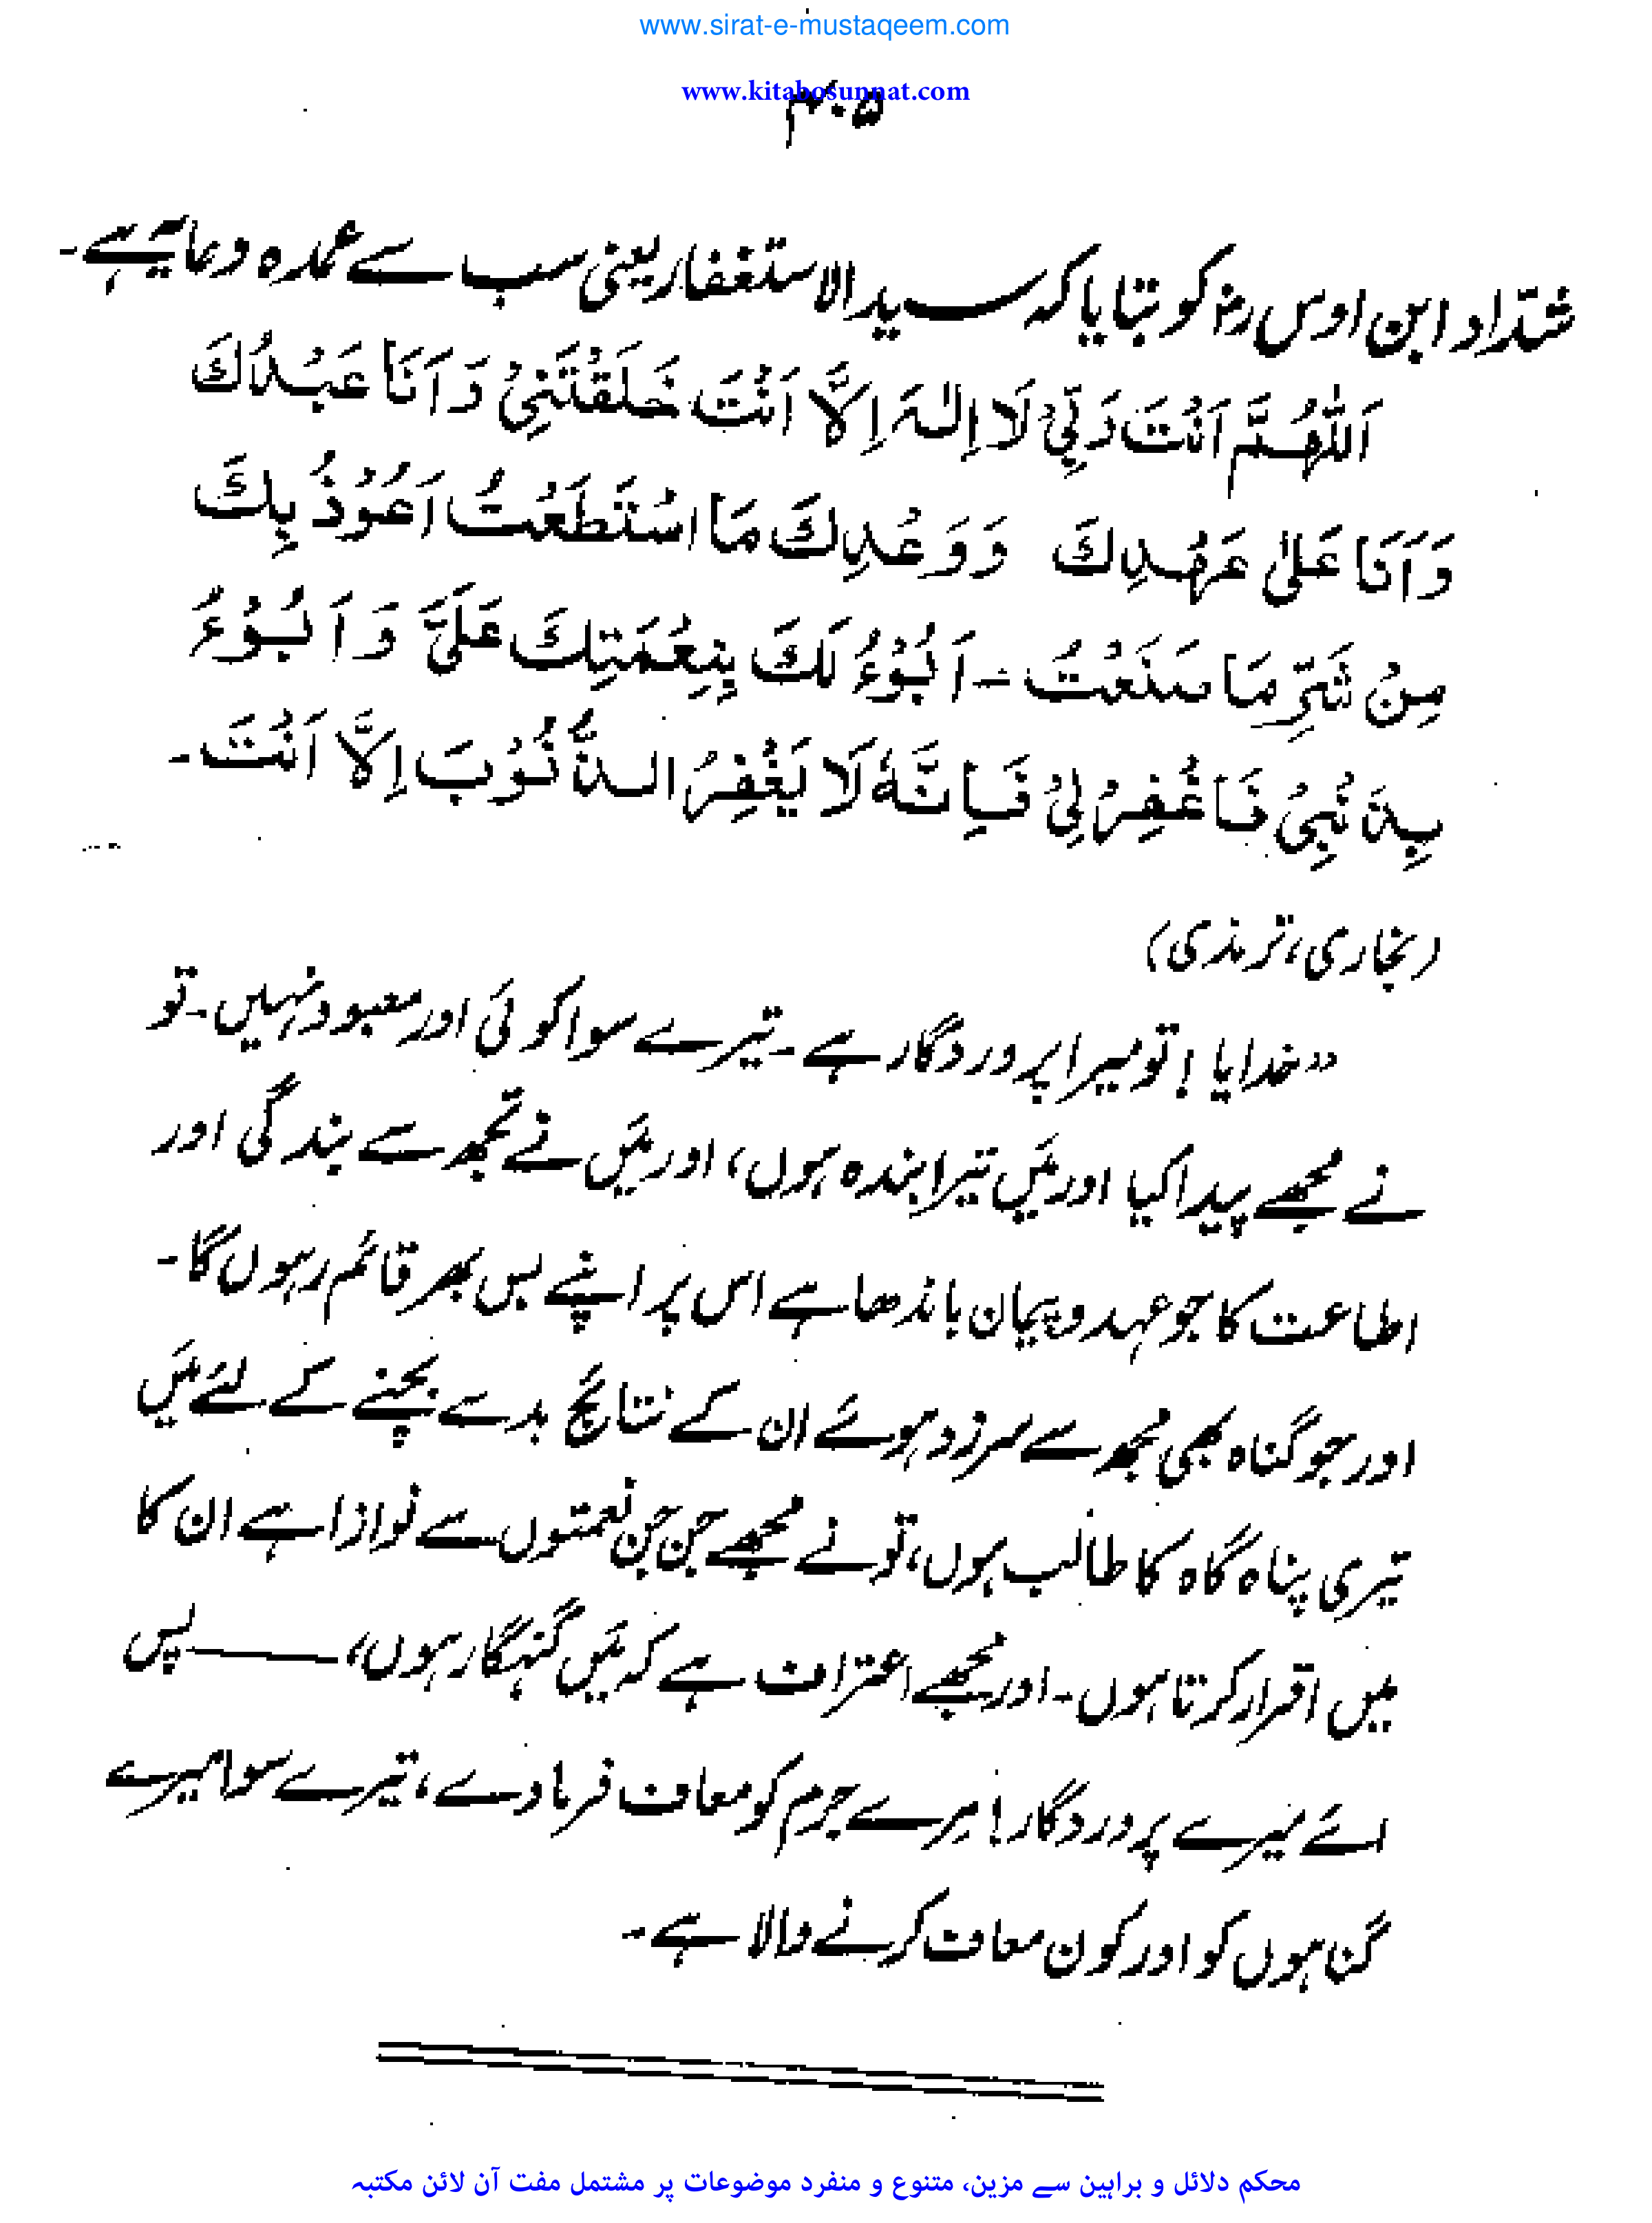 www.sirat-e-mustaqeem.com
www.kitabosunnat.com
۴۰۵
شدّاد ابن اوس رضؓ کو بتایا کہ سید الاستغفار یعنی سب سے عمدہ دعا یہ ہے۔
اَللّٰهُمَّ اَنْتَ رَبِّیْ لَا اِلٰهَ اِلَّا اَنْتَ خَلَقْتَنِیْ وَ اَنَا عَبْدُكَ
وَ اَنَا عَلٰى عَهْدِكَ وَ وَعْدِكَ مَا اسْتَطَعْتُ اَعُوْذُ بِكَ
مِنْ شَرِّ مَا صَنَعْتُ ۔ اَبُوْءُ لَكَ بِنِعْمَتِكَ عَلَیَّ وَ اَبُوْءُ
بِذَنْبِیْ فَاغْفِرْ لِیْ فَاِنَّهٗ لَا یَغْفِرُ الذُّنُوْبَ اِلَّا اَنْتَ۔
(بخاری، ترمذی)
”خدایا! تو میرا پروردگار ہے۔ تیرے سوا کوئی اور معبود نہیں۔ تو
نے مجھے پیدا کیا اور مَیں تیرا بندہ ہوں، اور مَیں نے تجھ سے بندگی اور
اطاعت کا جو عہد و پیمان باندھا ہے اس پر اپنے بس بھر قائم رہوں گا۔
اور جو گناہ بھی مجھ سے سرزد ہوئے ان کے نتائج بد سے بچنے کے لئے مَیں
تیری پناہ گاہ کا طالب ہوں، تو نے مجھے جن جن نعمتوں سے نوازا ہے ان کا
میں اقرار کرتا ہوں۔ اور مجھے اعتراف ہے کہ مَیں گنہگار ہوں، ـــــ پس
اے میرے پروردگار! میرے جرم کو معاف فرما دے، تیرے سوا میرے
گناہوں کو اور کون معاف کرنے والا ہے۔
محکم دلائل و براہین سے مزین، متنوع و منفرد موضوعات پر مشتمل مفت آن لائن مکتبہ